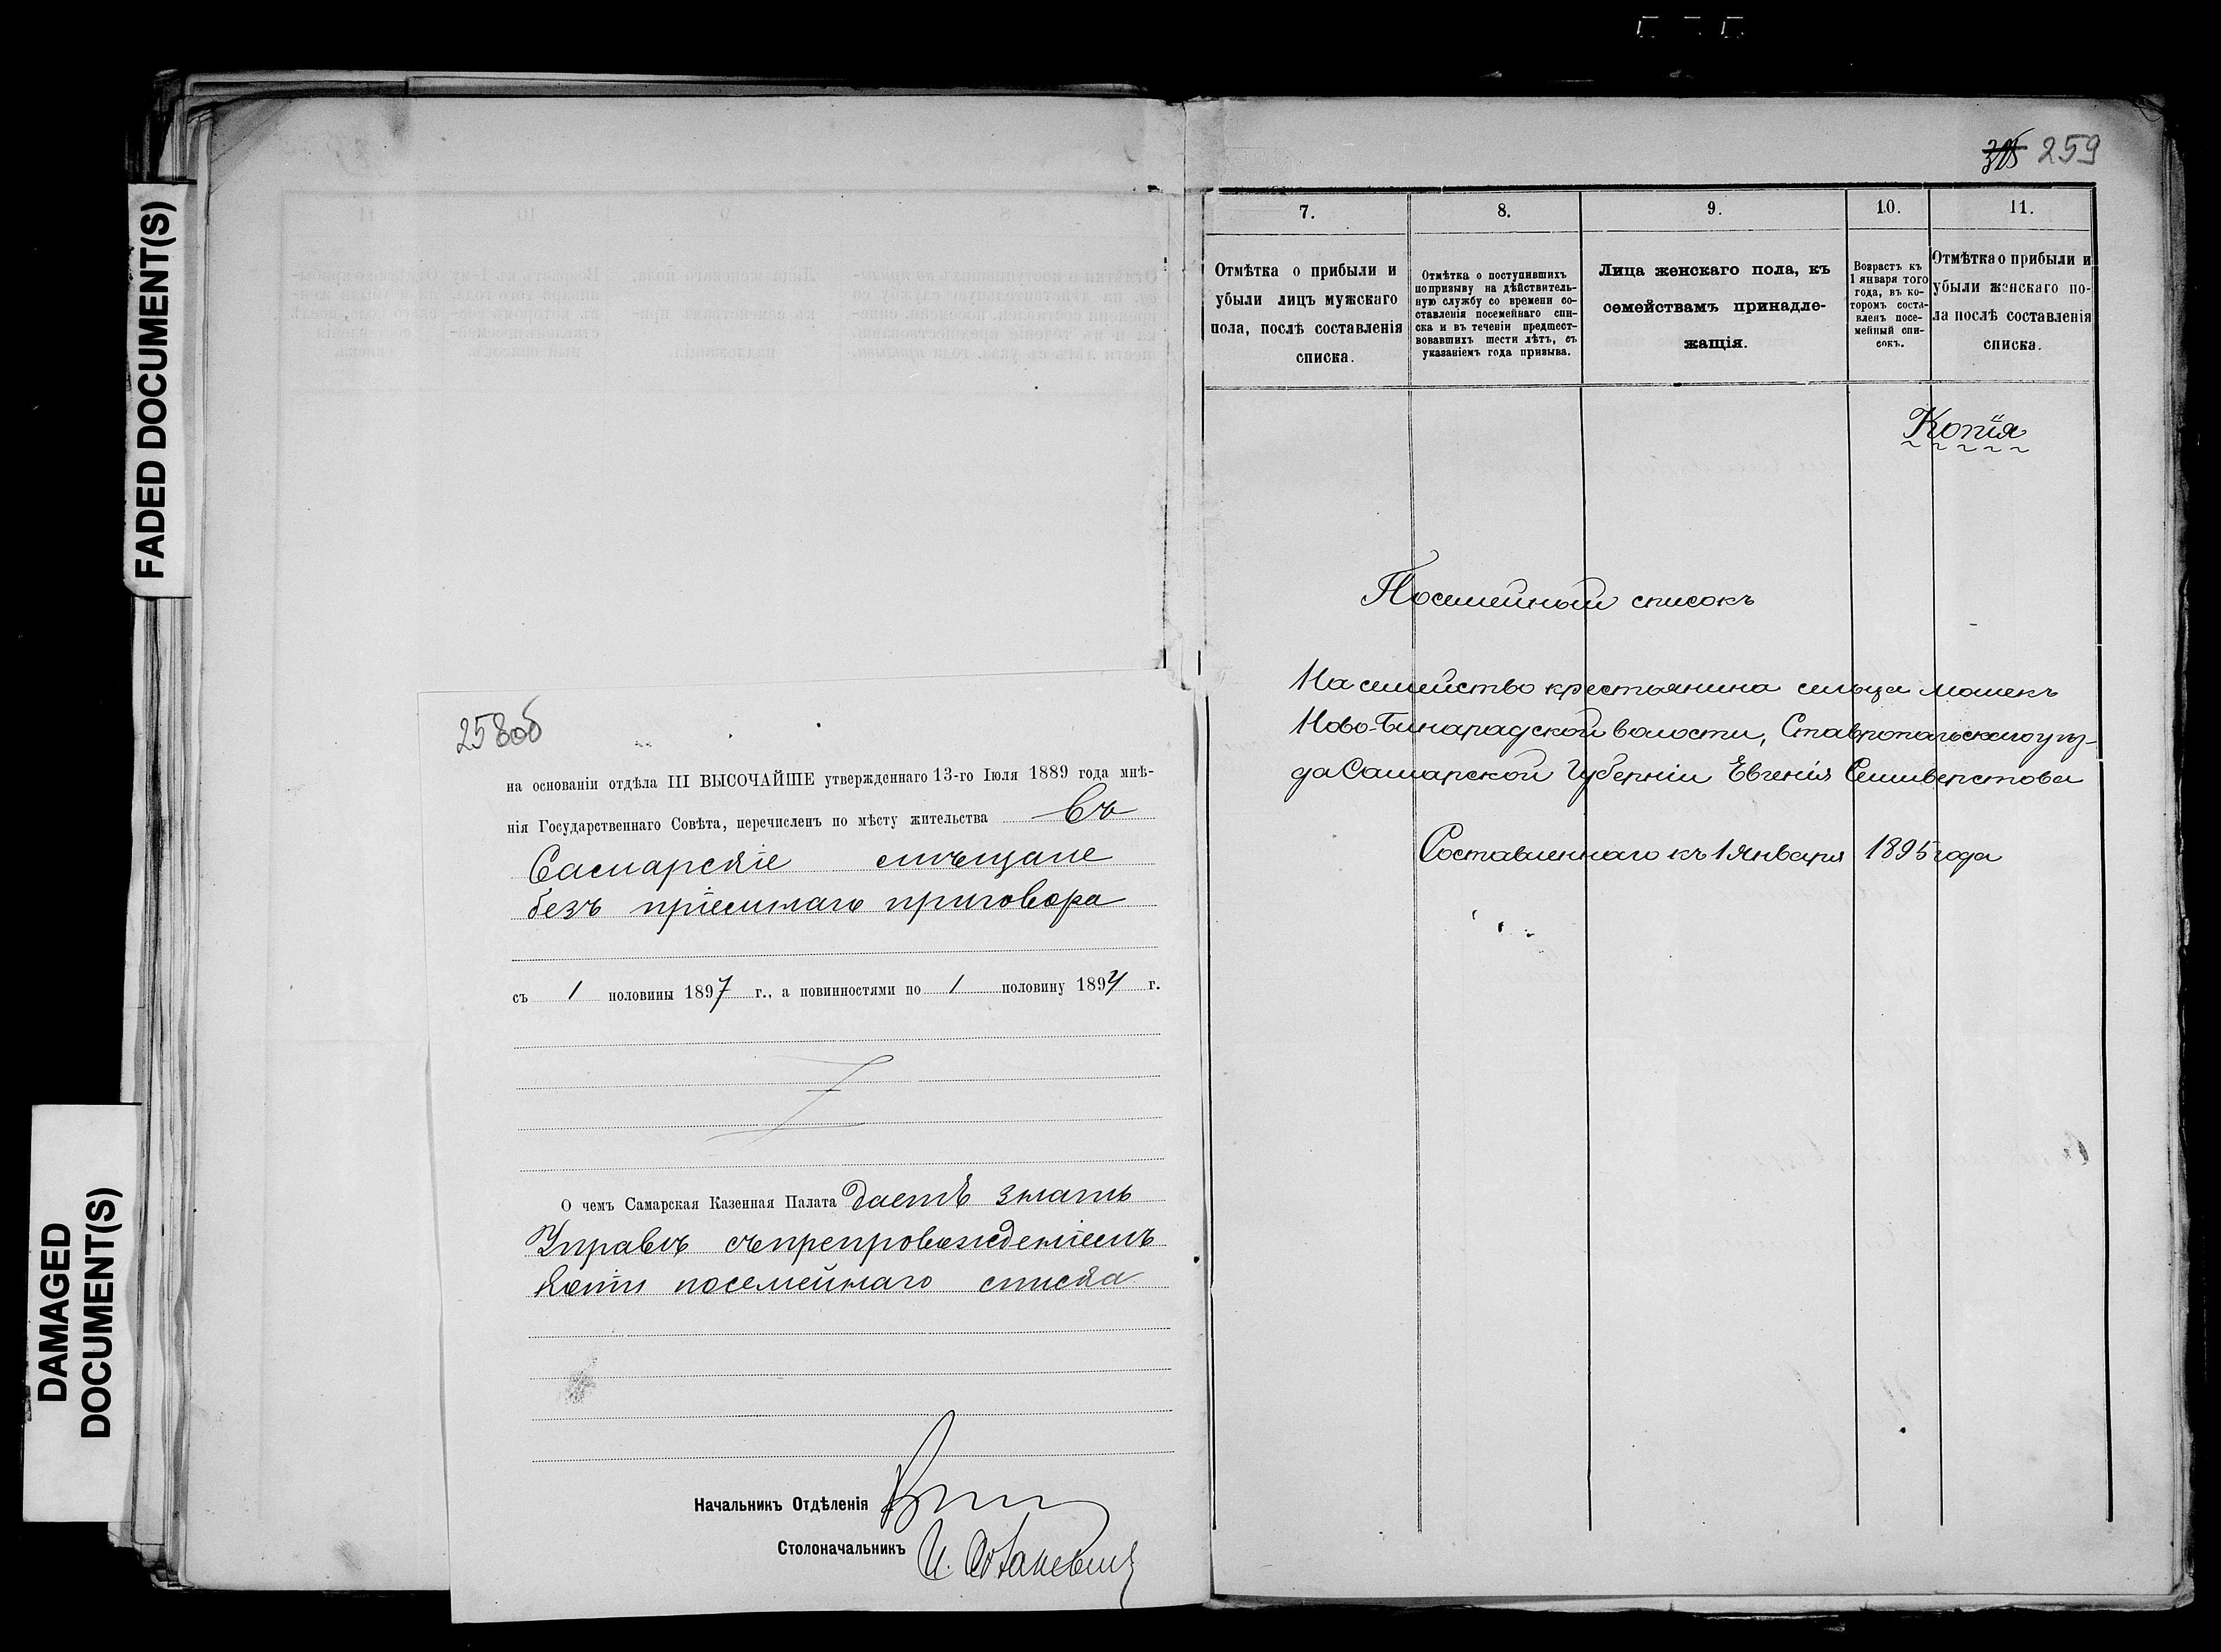 FADED DOCUMENT(S)
DAMAGED
DOCUMENT(S)
258об
на основаніи отдѣла III ВЫСОЧАЙШЕ утвержденнаго 13-го Іюля 1889 года мнѣ-
нія Государственнаго Совѣта, перечисленъ по мѣсту жительства въ
Самарскіе мѣщане
безъ пріемнаго приговора
съ 1 половины 1897 г., а повинностями по 1 половину 189 г.
О чемъ Самарская Казенная Палата даетъ знать
Управѣ съпрепровожденіемъ
копіи посемейнаго списка
Начальникъ Отдѣленія
Столоначальникъ
259
7.
8.
9.
10.
11.
Отмѣтка о прибыли и
убыли лицъ мужскаго
пола, послѣ составленія
списка.
Отмѣтка о поступившихъ
по призыву на дѣйствитель-
ную службу со времени со-
ставленія посемейнаго спи-
ска и въ теченіи предшест-
вовавшихъ шести лѣтъ, съ
указаніемъ года призыва.
Лица женскаго пола, къ
семействамъ принадле-
жащія.
Возрастъ къ
1 января того
года, въ ко-
торомъ соста-
вленъ посе-
мейный спи-
сокъ.
Отмѣтка о прибыли и
убыли женскаго по-
ла послѣ составленія
списка.
Копія
Посемейный списокъ
На семейство крестьянина сельца Мошекъ
Ново-Бинарадской волости, Ставропольскаго уѣз-
да Самарской Губерніи Евгенія Селиверстова
Составленнаго къ 1 Января 1895 года